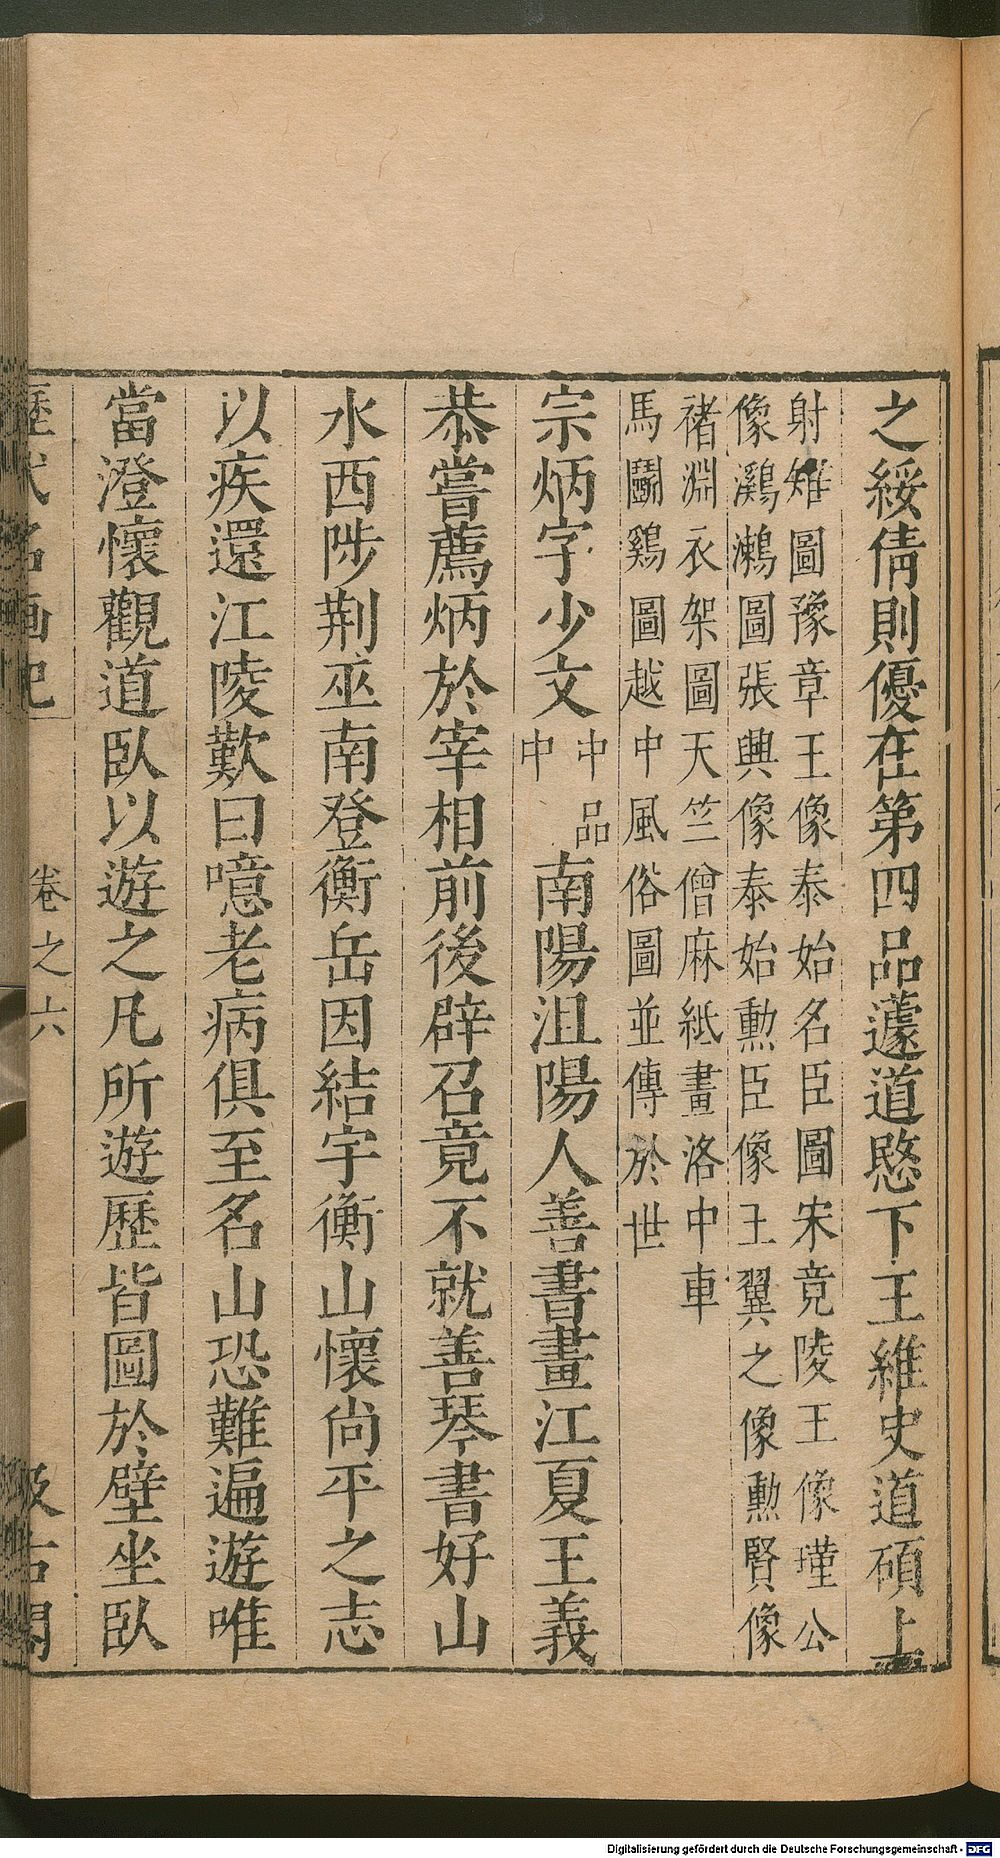 之綏倩則優在第四品蘧道愍下王維史道碩上
射雉圖豫章王像泰始名臣圖宋竟陵王像瑾公
像鸂鶒圖張興像泰始勳臣像王翼之像勳賢像
褚淵衣架圖天竺僧麻紙畫洛中車
馬鬭鷄圖越中風俗圖並傳於世
宗炳字少文中品中南陽沮陽人善書畫江夏王義
恭嘗薦炳於宰相前後辟召竟不就善琴書好山
水西陟荆巫南登衡岳因結宇衡山懷尚平之志
以疾還江陵歎曰噫老病俱至名山恐難遍遊唯
當澄懷觀道臥以遊之凡所遊歷皆圖於壁坐臥
歷代名画記 卷之六 汲古閣
Digitalisierung gefördert durch die Deutsche Forschungsgemeinschaft - DFG